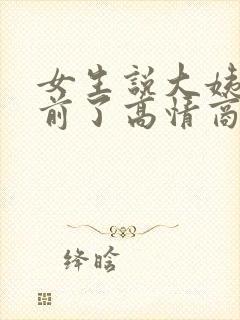 女生说大姨
前了高情商
绛晗